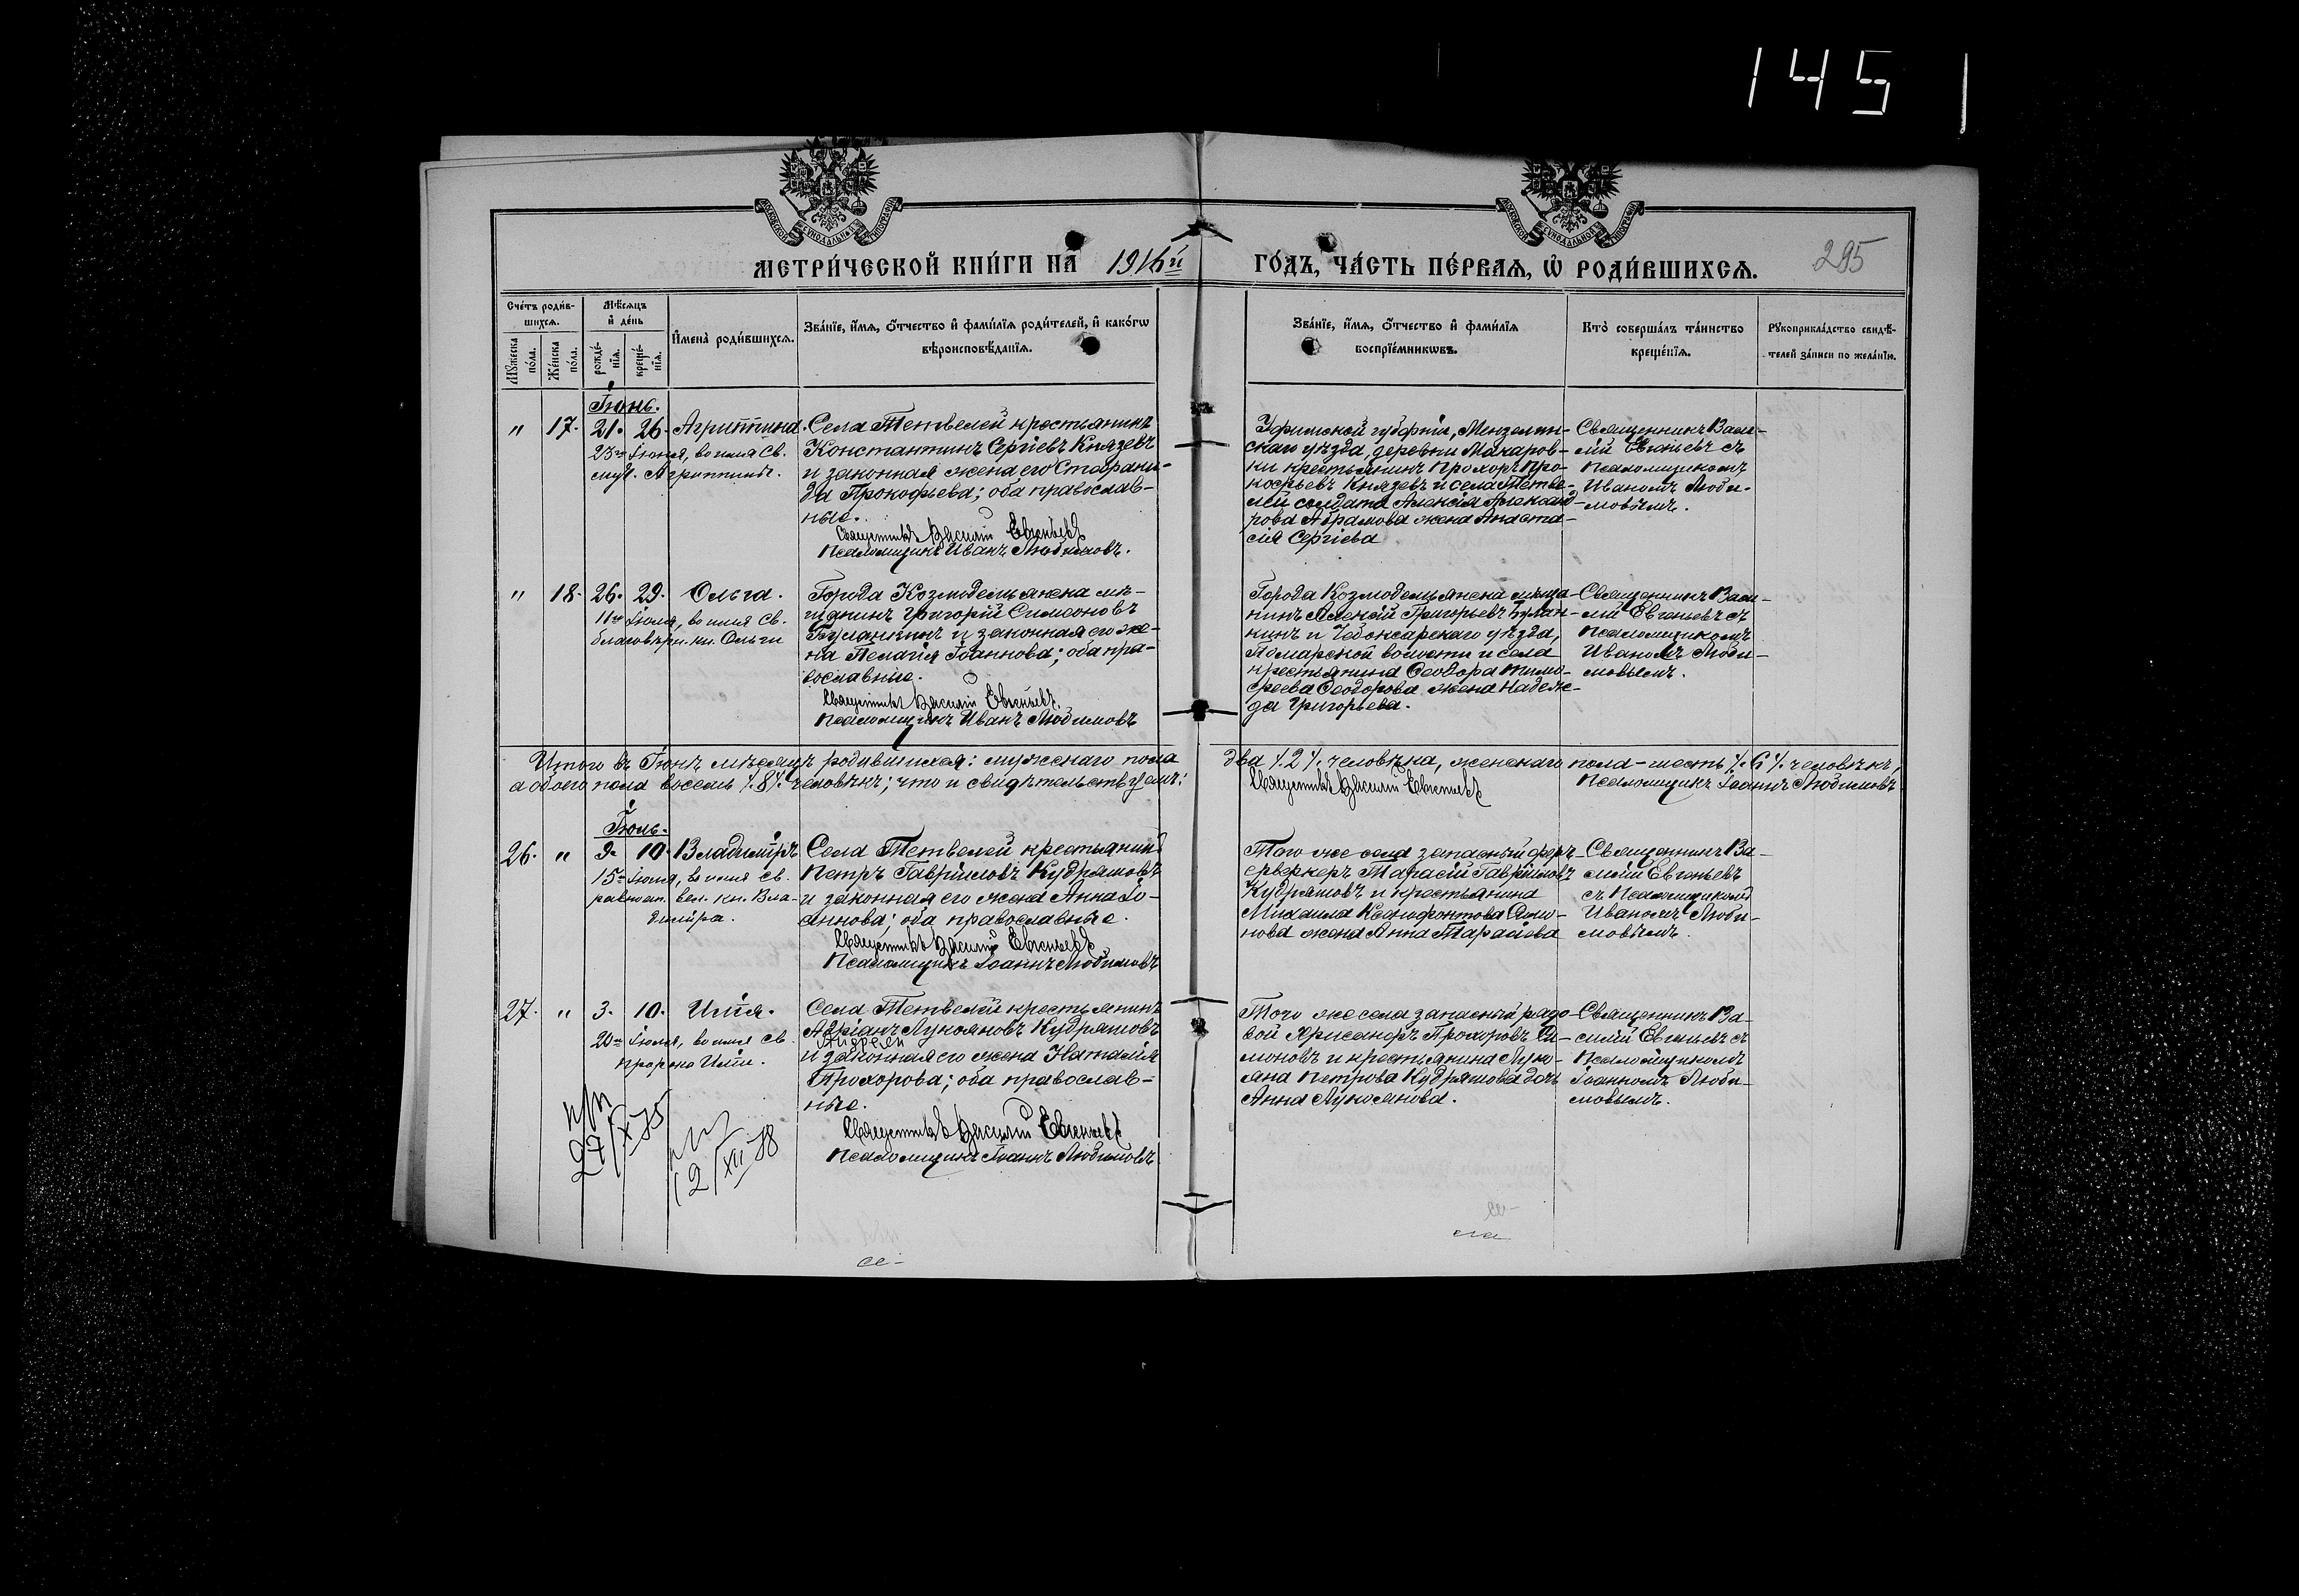 145
МЕТРИ́ЧЕСКОЙ КНИ́ГИ НА 1916й ГО́ДЪ, ЧА́СТЬ ПЕ́РВАѦ, Ѡ҆ РОДИ́ВШИХСѦ.
295
Сче́тъ роди́в-
шихсѧ.
Мꙋ́жеска по́ла.
Же́нска по́ла.
Мѣ́сѧцъ
и҆ де́нь
рожде́-
нїѧ.
креще́-
нїѧ.
И҆мена̀ роди́вшихсѧ.
Зва́нїе, и҆́мѧ, ѻ҆́тчество и҆ фами́лїѧ роди́телей, и҆ како́гѡ
вѣроисповѣ́данїѧ.
Зва́нїе, и҆́мѧ, ѻ҆́тчество и҆ фами́лїѧ
воспрїе́мникѡвъ.
Кто̀ соверша́лъ та́инство
креще́нїѧ.
Рꙋкоприкла́дство свидѣ́-
телей за́писи по жела́нїю.
Іюнь.
" 17. 21. 26. Агриппина.
23го Іюня, во имя Св.
муч. Агриппины.
Села Тетвелей крестьянинъ
Константинъ Сергіевъ Князевъ
и законная жена его Стефани-
да Прокофьева; оба православ-
ные.
Священникъ Василій Евгеньевъ
Псаломщикъ Иванъ Любимовъ.
Уфимской губерніи, Мензелин-
скаго уѣзда, деревни Макаров-
ки крестьянинъ Прохоръ Про-
кофьевъ Князевъ и села Тетве-
лей солдата Алексія Александ-
рова Абрамова жена Анаста-
сія Сергіева
Священникъ Васи-
лій Евгеньевъ съ
псаломщикомъ
Иваномъ Люби-
мовымъ.
" 18. 26. 29. Ольга.
11го Іюля, во имя Св.
благовѣрн. кн. Ольги
Города Козмодемьянска мѣ-
щанинъ Григорій Симеоновъ
Буланкинъ и законная его же-
на Пелагія Іоаннова; оба пра-
вославные.
Священникъ Василій Евгеньевъ.
Псаломщикъ Иванъ Любимовъ
Города Козмодемьянска мѣща-
нинъ Алексій Григорьевъ Булан-
кинъ и Чебоксарскаго уѣзда,
волости и села
крестьянина Ѳеодора Тимо-
феева Ѳеодорова жена Надеж-
да Григорьева.
Священникъ Васи-
лій Евгеньевъ съ
псаломщикомъ
Иваномъ Люби-
мовымъ.
Итого въ Іюнѣ мѣсяцѣ родившихся: мужскаго пола два /.2./ человѣка, женскаго пола - шесть /.6./ человѣкъ,
а обоего пола восемь /.8./ человѣкъ; что и свидѣтельствуемъ:
Священникъ Василій Евгеньевъ
Псаломщикъ Іоаннъ Любимовъ
Іюль.
26. " 9. 10. Владиміръ
15го Іюля, во имя св.
равноап. вел. кн. Вла-
диміра.
Села Тетвелей крестьянинъ
Петръ Гавриловъ Кудряшовъ
и законная его жена Анна Іо-
аннова; оба православные.
Священникъ Василій Евгеньевъ
Псаломщикъ Іоаннъ Любимовъ
Того же села запасный фей-
ерверкеръ Тарасій Гавриловъ
Кудряшовъ и крестьянина
Михаила Ксенофонтова
жена Анна Тарасова
Священникъ Ва-
силій Евгеньевъ
съ псаломщикомъ
Иваномъ Люби-
мовымъ.
27. " 3. 10. Илія.
20го Іюля, во имя св.
пророка Иліи.
Села Тетвелей крестьянинъ
Адріанъ Лукояновъ Кудряшовъ
Андрей
и законная его жена Наталія
Прохорова; оба православ-
ные.
Священникъ Василій Евгеньевъ
Псаломщикъ Іоаннъ Любимовъ
Того же села запасный рядо-
вой Хрисанфъ Прохоровъ Си-
моновъ и крестьянина Луко-
яна Петрова Кудряшова дочь
Анна Лукоянова.
Священникъ Ва-
силій Евгеньевъ съ
псаломщикомъ
Іоанномъ Люби-
мовымъ.
27/X 75
12/XII 78